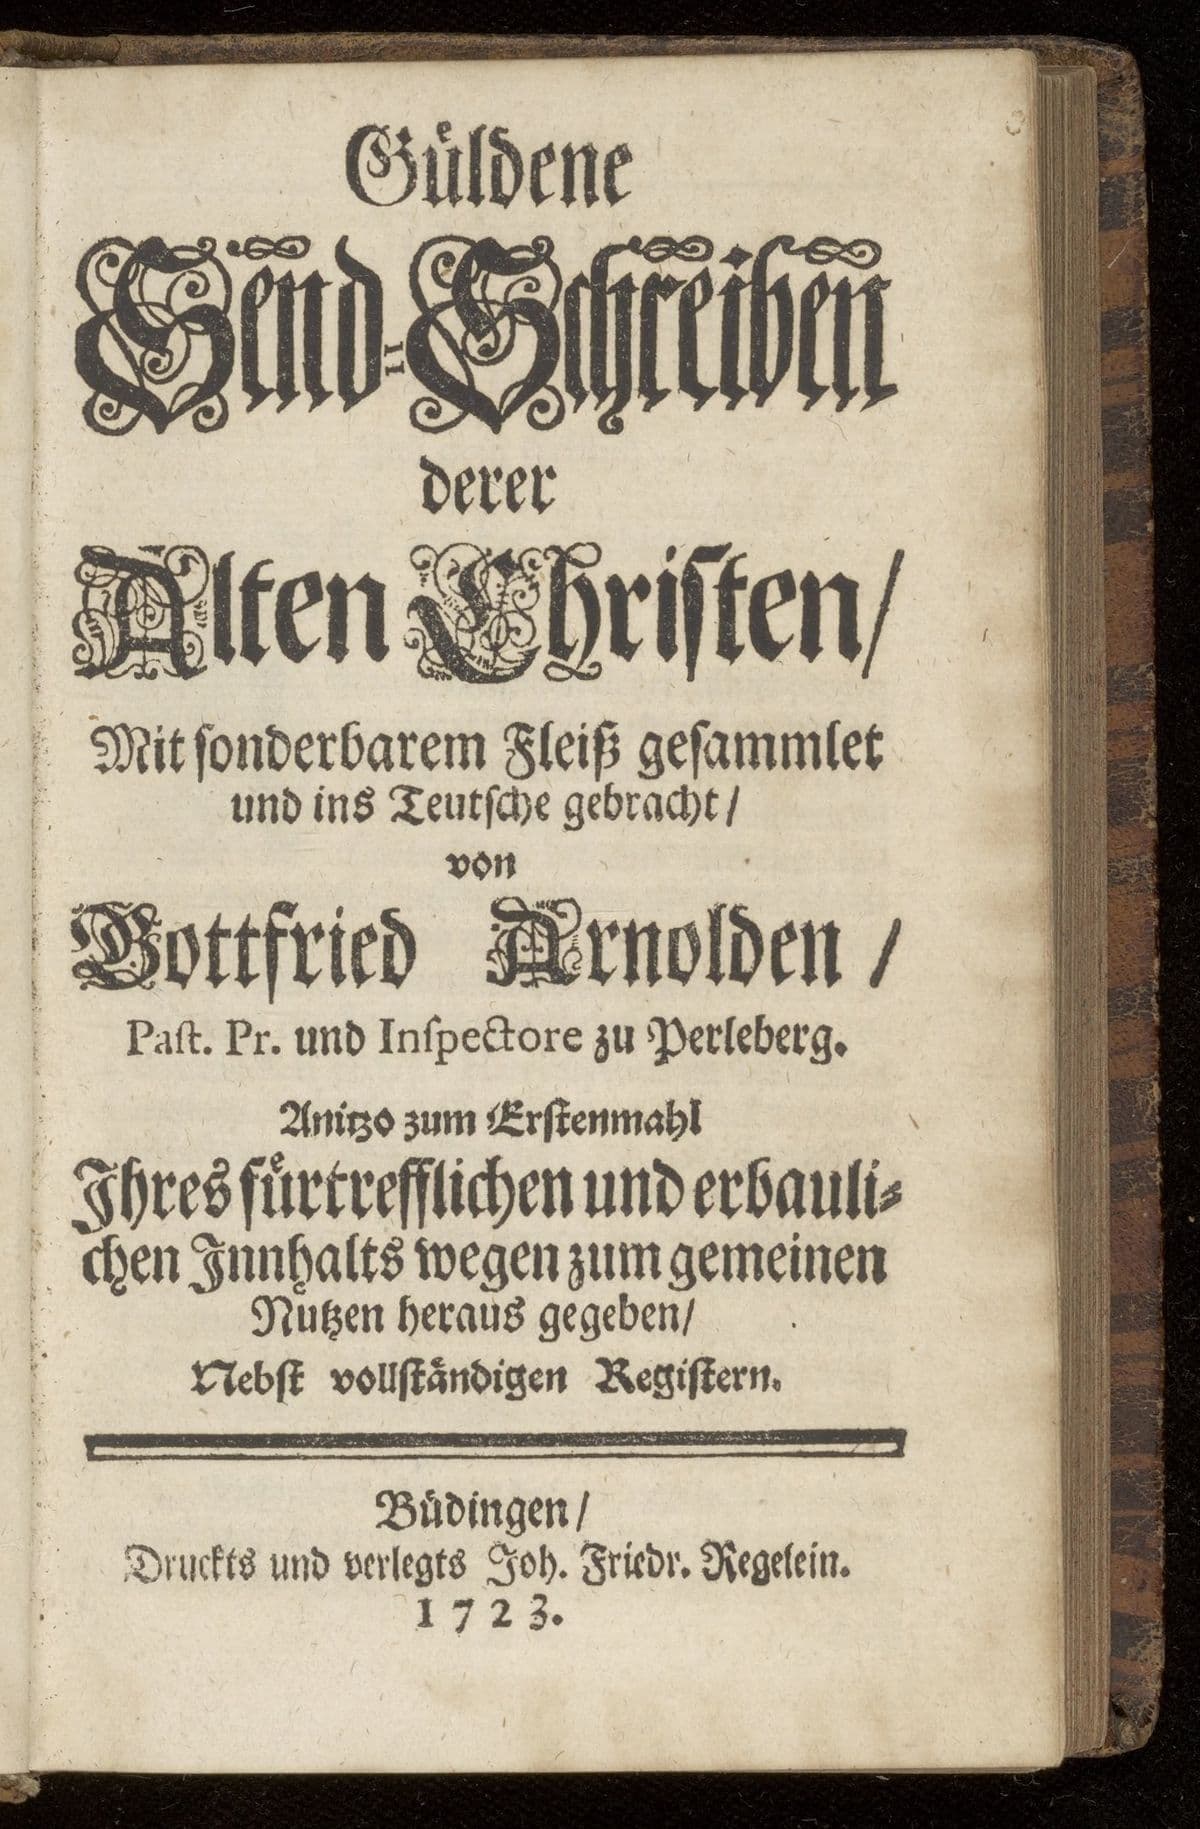 Guͤldene
Send-Schreiben
derer
Alten Christen/
Mit sonderbarem Fleiß gesammlet
und ins Teutsche gebracht/
von
Gottfried Arnolden /
Past. Pr. und Inspectore zu Perleberg.
Anitzo zum Erstenmahl
Ihres fuͤrtrefflichen und erbauli-
chen Innhalts wegen zum gemeinen
Nutzen heraus gegeben/
Nebst vollstaͤndigen Registern.
Büdingen/
Druckts und verlegts Joh. Friedr. Regelein.
1723.